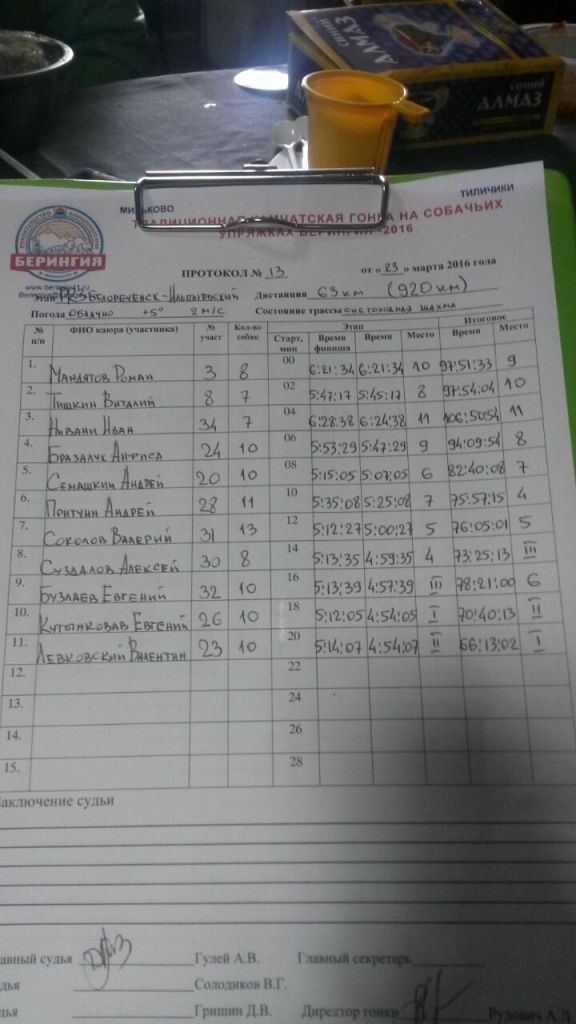 СИНИЙ
АЛМАЗ
СИНИЙ
АЛМАЗ
МИЛЬКОВО
ТИЛИЧИКИ
ТРАДИЦИОННАЯ КАМЧАТСКАЯ ГОНКА НА СОБАЧЬИХ
УПРЯЖКАХ БЕРИНГИЯ-2016
БЕРИНГИЯ
ПРОТОКОЛ № 13 от «23» марта 2016 года
Дистанция 63 км (920 км)
Погода ОБЛАЧНО +5° 2 М/С Состояние трассы
№ п/п ФИО каюра (участника) № участ Кол-во собак Этап Итоговое
Старт, мин Время финиша Время Место Время Место
1. МАНДЯТОВ РОМАН 3 8 00 6:21:34 6:21:34 10 97:51:33 9
2. ТИШКИН ВИТАЛИЙ 8 7 02 5:47:17 5:45:17 8 97:54:04 10
3. НИВАНИ ИВАН 34 7 04 6:28:38 6:24:38 11 106:50:54 11
4. БРАЗАЛУК 24 10 06 5:53:29 5:47:29 9 94:09:54 8
5. СЕМАШКИН АНДРЕЙ 20 10 08 5:15:05 5:07:05 6 82:40:08 7
6. ПРИТЧИН АНДРЕЙ 28 11 10 5:35:08 5:25:08 7 75:57:15 4
7. СОКОЛОВ ВАЛЕРИЙ 31 13 12 5:12:27 5:00:27 5 76:05:01 5
8. СУЗДАЛОВ АЛЕКСЕЙ 30 8 14 5:13:35 4:59:35 4 73:25:13 III
9. БУЗЛАЕВ ЕВГЕНИЙ 32 10 16 5:13:39 4:57:39 III 78:21:00 6
10. ЕВГЕНИЙ 26 10 18 5:12:05 4:54:05 I 70:40:13 II
11. ЛЕВКОВСКИЙ ВАЛЕНТИН 23 10 20 5:14:07 4:54:07 II 66:13:02 I
12. 22
13. 24
14. 26
15. 28
аключение судьи
авный судья Гулей А.В. Главный секретарь
дья Солодиков В.Г.
дья Гришин Д.В. Директор гонки Рудович А.Л.